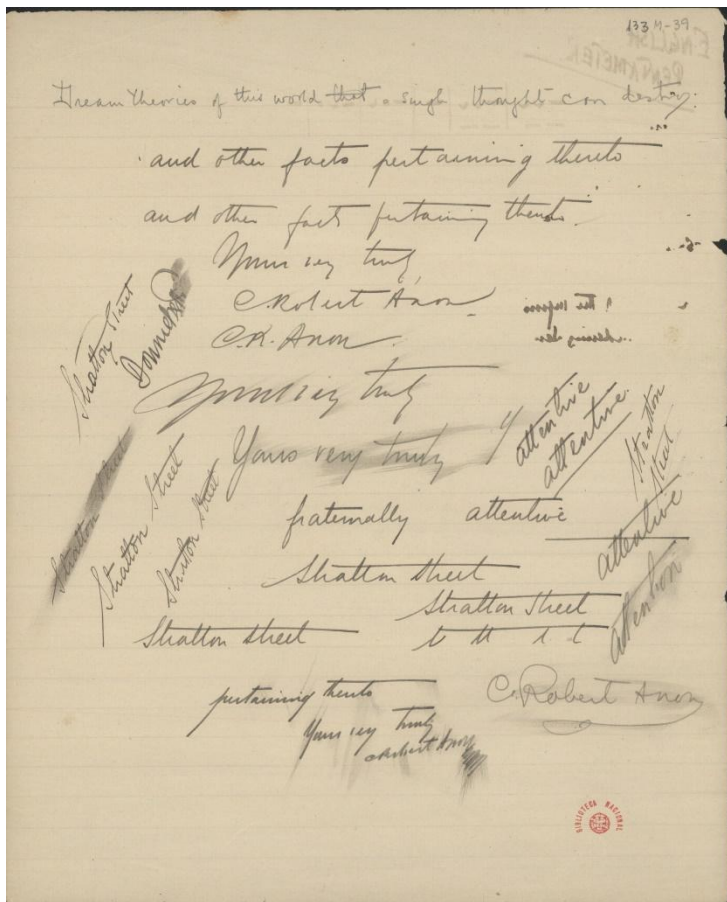 133 M-39
ENGLISH
PENTAMETER
Dream theories of this world that a single thought can destroy.
and other facts pertaining thereto
and other facts pertaining thereto.
Yours very truly,
C. Robert Anon
C.R. Anon.
Yours very truly
Yours very truly
Stratton Street
Stratton Street
Stratton Street
Stratton Street
attentive
attentive
Stratton
Street
fraternally attentive
attentive
attention
Stratton Street
Stratton Street
Stratton Street t tt t t
pertaining thereto
C. Robert Anon
Yours very truly
C Robert Anon
BIBLIOTECA NACIONAL